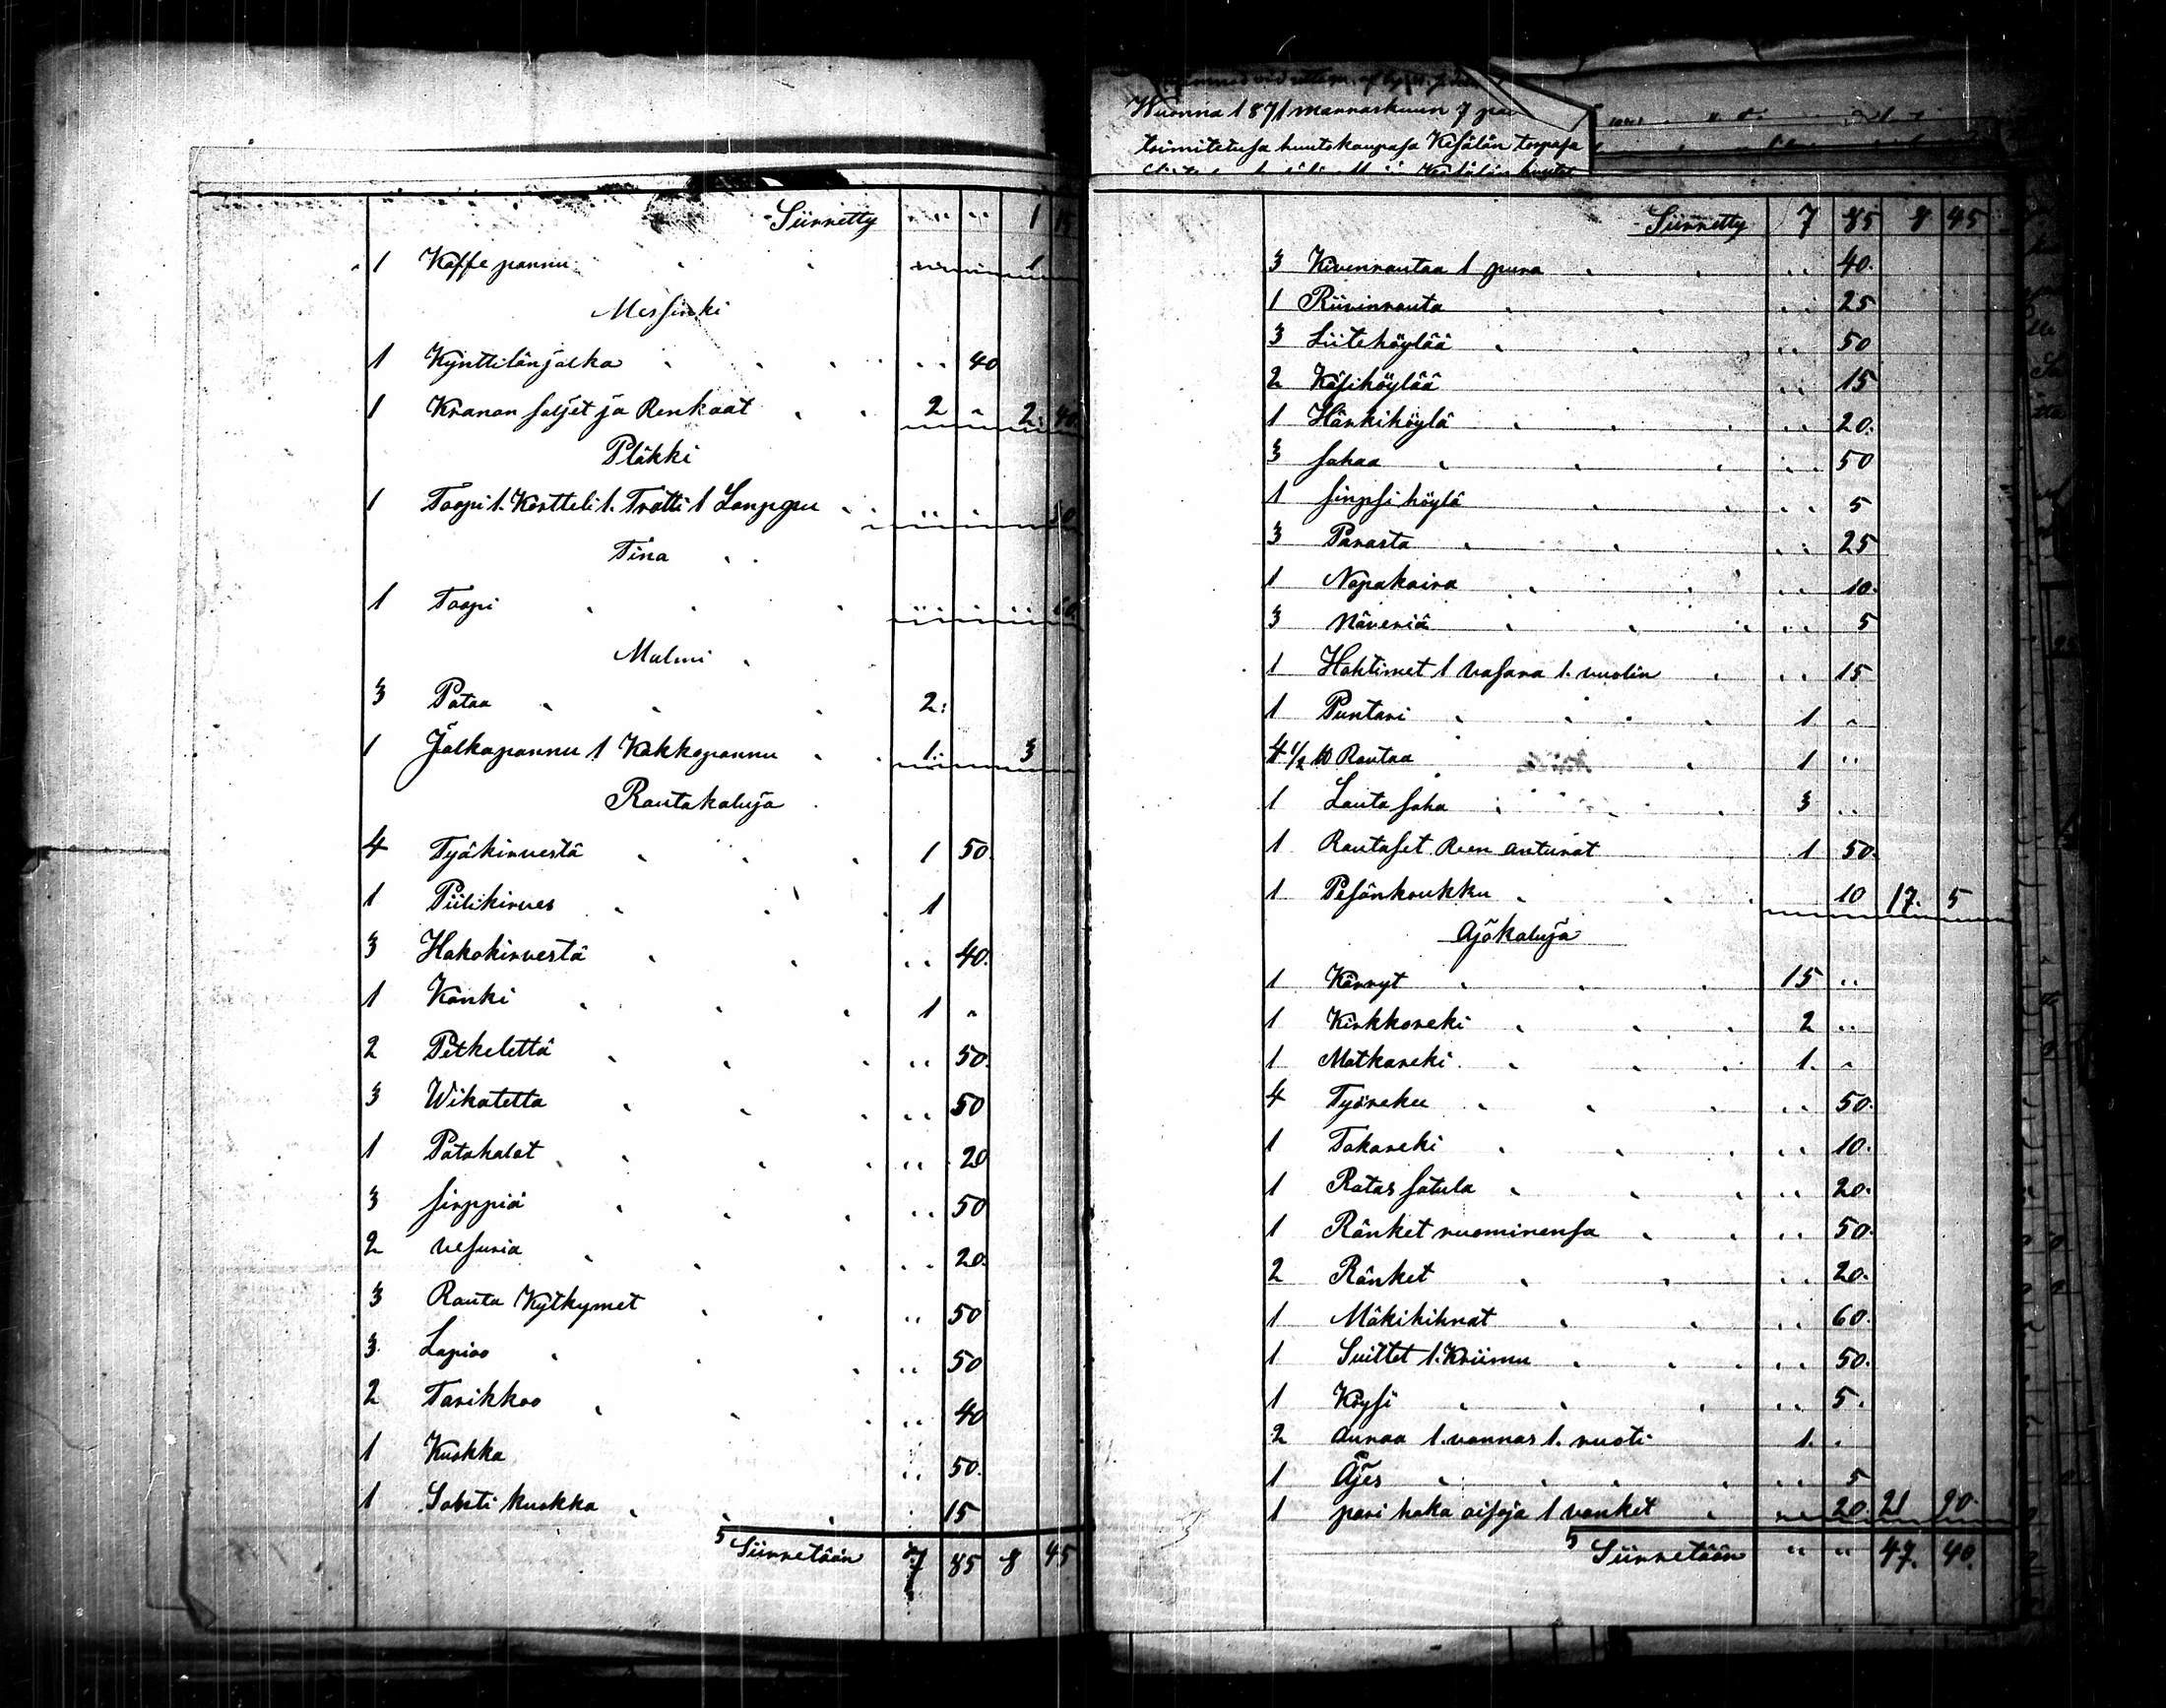 Siirretty " " 1 15
1 Kaffe pannu " " 1
Messinki
1 Kynttilänjalka " 40
1 Kranan soljet ja Renkaat 2 " 2. 40.
Pläkki
1 Toopi 1. Kortteli 1. Tratti 1 Lamppu " " 50
Tina
1 Toopi " " 60
Malmi
3 Pataa 2:
1 Jalkapannu 1 Kakkopannu 1: 3
Rautakaluja
4 Työkirvestä 1 50.
1 Piilikirves 1
3 Hakokirvestä " 40.
1 Kanki 1 "
2 Petkelettä " 50.
3 Wikatetta " 50
1 Patahalat " 20
3 sirppiä " 50
2 vesuria " 20.
3 Rauta Kytkymet " 50
3. Lapioo " 50
2 Tarikkoo " 40
1 Kuokka " 50.
1 Sonti kuokka " 15
Siirretään 7 85 8 45
Wuonna 1871 marraskuun 7 pä
toimitetusa huutokaupasa Kesälän torpasa
Siirretty 7 85 8 45
3 Kivenrautaa 1 pura " 40.
1 Riivinrauta " 25
3 Liitehöylää " 50
2 Käsihöylää " 15
1 Härkihöylä " 20.
3 sahaa " 50
1 simpsi höylä " 5
3 Parasta " 25
1 Napakaira " 10.
3 Näveriä " 5
1 Hohtimet 1 vasara 1. vuolin " 15
1 Puntari 1 "
4 1/2 ℔ Rautaa 1 "
1 Lauta saha 3 "
1 Rautaset Reen anturat 1 50.
1 Pesänkoukku 10 17. 5
Ajokaluja
1 Kärryt 15 "
1 Kirkkoreki 2 "
1 Matkareki 1. "
4 Työreku " 50.
1 Takareki " 10.
1 Ratas satula " 20.
1 Ränket ruominensa " 50.
2 Ränket " 20.
1 Mäkihihnat " 60.
1 Suittet 1. Kriimu " 50.
1 Köysi " 5.
2 auraa 1. vannas 1. ruoti 1. "
1 Äjes " 5
1 pari haka aisoja 1 vanket " 20. 21 90.
Siirretään " " 47. 40.